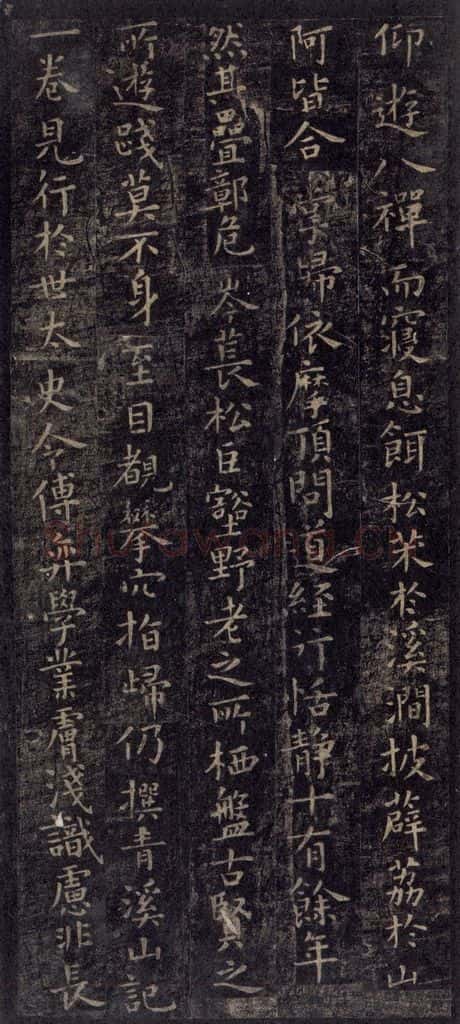 仰遊八禪而寢息餌松茱於溪澗披薜荔於山
阿皆合掌歸依摩頂問道經行恬靜十有餘年
然其疊鄣危岑萇松巨壑野老之所栖盤古賢之
所遊踐莫不身至目覩穴指歸仍撰青溪山記
一卷見行於世太史令傅弈學業膚淺識慮非長